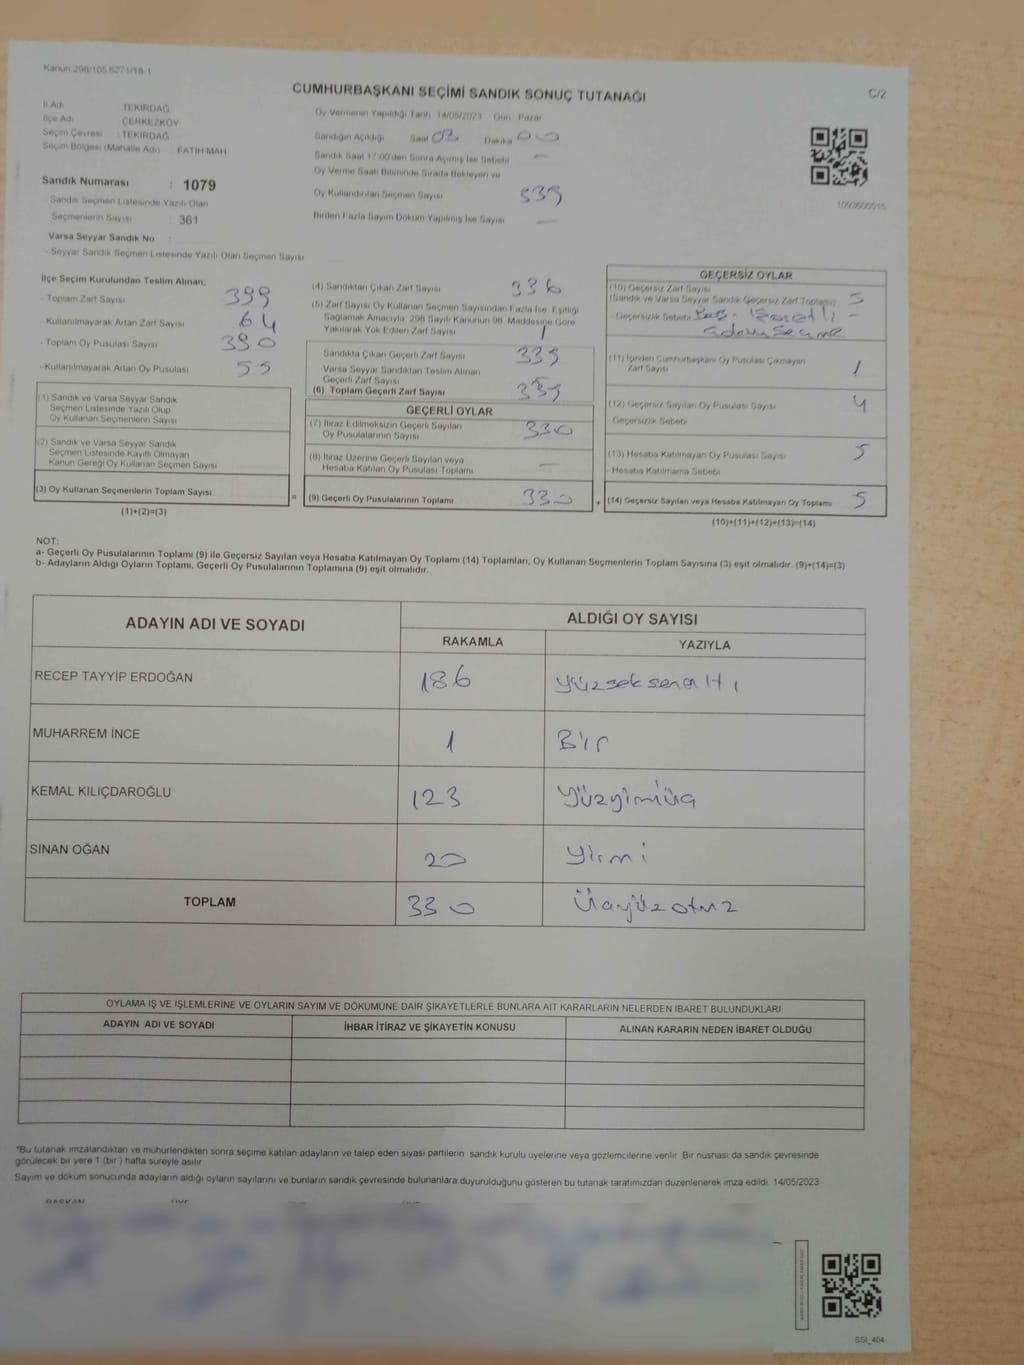 Kanun:298/105,6271/18-1
CUMHURBAŞKANI SEÇİMİ SANDIK SONUÇ TUTANAĞI
C/2
İl Adı : TEKİRDAĞ
İlçe Adı : ÇERKEZKÖY
Seçim Çevresi : TEKİRDAĞ
Seçim Bölgesi (Mahalle Adı) FATİH MAH
Sandık Numarası : 1079
Sandık Seçmen Listesinde Yazılı Olan
Seçmenlerin Sayısı : 361
Varsa Seyyar Sandık No
- Seyyar Sandık Seçmen Listesinde Yazılı Olan Seçmen Sayısı
Oy Vermenin Yapıldığı Tarih :14/05/2023 Gün : Pazar
Sandığın Açıldığı Saat 08 Dakika 00
Sandık Saat 17:00'den Sonra Açılmış İse Sebebi —
Oy Verme Saati Bitiminde Sırada Bekleyen ve
Oy Kullandırılan Seçmen Sayısı 335
Birden Fazla Sayım Döküm Yapılmış İse Sayısı —
İlçe Seçim Kurulundan Teslim Alınan;
- Toplam Zarf Sayısı 399
- Kullanılmayarak Artan Zarf Sayısı 64
- Toplam Oy Pusulası Sayısı 390
- Kullanılmayarak Artan Oy Pusulası 55
(1) Sandık ve Varsa Seyyar Sandık
Seçmen Listesinde Yazılı Olup
Oy Kullanan Seçmenlerin Sayısı
(2) Sandık ve Varsa Seyyar Sandık
Seçmen Listesinde Kayıtlı Olmayan
Kanun Gereği Oy Kullanan Seçmen Sayısı
(3) Oy Kullanan Seçmenlerin Toplam Sayısı
(1)+(2)=(3)
=
(4) Sandıktan Çıkan Zarf Sayısı 336
(5) Zarf Sayısı Oy Kullanan Seçmen Sayısından Fazla İse, Eşitliği
Sağlamak Amacıyla, 298 Sayılı Kanunun 98. Maddesine Göre
Yakılarak Yok Edilen Zarf Sayısı 1
Sandıkta Çıkan Geçerli Zarf Sayısı 335
Varsa Seyyar Sandıktan Teslim Alınan
Geçerli Zarf Sayısı
(6) Toplam Geçerli Zarf Sayısı 335
GEÇERLİ OYLAR
(7) İtiraz Edilmeksizin Geçerli Sayılan
Oy Pusulalarının Sayısı 330
(8) İtiraz Üzerine Geçerli Sayılan veya
Hesaba Katılan Oy Pusulası Toplamı —
(9) Geçerli Oy Pusulalarının Toplamı 330
+
GEÇERSİZ OYLAR
(10) Geçersiz Zarf Sayısı
(Sandık ve Varsa Seyyar Sandık Geçersiz Zarf Toplamı)
- Geçersizlik Sebebi
(11) İçinden Cumhurbaşkanı Oy Pusulası Çıkmayan
Zarf Sayısı 1
(12) Geçersiz Sayılan Oy Pusulası Sayısı 4
- Geçersizlik Sebebi
(13) Hesaba Katılmayan Oy Pusulası Sayısı 5
- Hesaba Katılmama Sebebi
(14) Geçersiz Sayılan veya Hesaba Katılmayan Oy Toplamı 5
(10)+(11)+(12)+(13)=(14)
NOT:
a- Geçerli Oy Pusulalarının Toplamı (9) ile Geçersiz Sayılan veya Hesaba Katılmayan Oy Toplamı (14) Toplamları, Oy Kullanan Seçmenlerin Toplam Sayısına (3) eşit olmalıdır. (9)+(14)=(3)
b- Adayların Aldığı Oyların Toplamı, Geçerli Oy Pusulalarının Toplamına (9) eşit olmalıdır.
ADAYIN ADI VE SOYADI
ALDIĞI OY SAYISI
RAKAMLA YAZIYLA
RECEP TAYYİP ERDOĞAN 186 Yüzseksenaltı
MUHARREM İNCE 1 Bir
KEMAL KILIÇDAROĞLU 123 Yüzyirmiüç
SİNAN OĞAN 20 Yirmi
TOPLAM 330 Üçyüzotuz
OYLAMA İŞ VE İŞLEMLERİNE VE OYLARIN SAYIM VE DÖKÜMÜNE DAİR ŞİKAYETLERLE BUNLARA AİT KARARLARIN NELERDEN İBARET BULUNDUKLARI
ADAYIN ADI VE SOYADI İHBAR İTİRAZ VE ŞİKAYETİN KONUSU ALINAN KARARIN NEDEN İBARET OLDUĞU
*Bu tutanak imzalandıktan ve mühürlendikten sonra seçime katılan adayların ve talep eden siyasi partilerin sandık kurulu üyelerine veya gözlemcilerine verilir. Bir nüshası da sandık çevresinde
görülecek bir yere 1 (bir ) hafta süreyle asılır.
Sayım ve döküm sonucunda adayların aldığı oyların sayılarını ve bunların sandık çevresinde bulunanlara duyurulduğunu gösteren bu tutanak tarafımızdan düzenlenerek imza edildi. 14/05/2023
BAŞKAN ÜYE
SSI_404